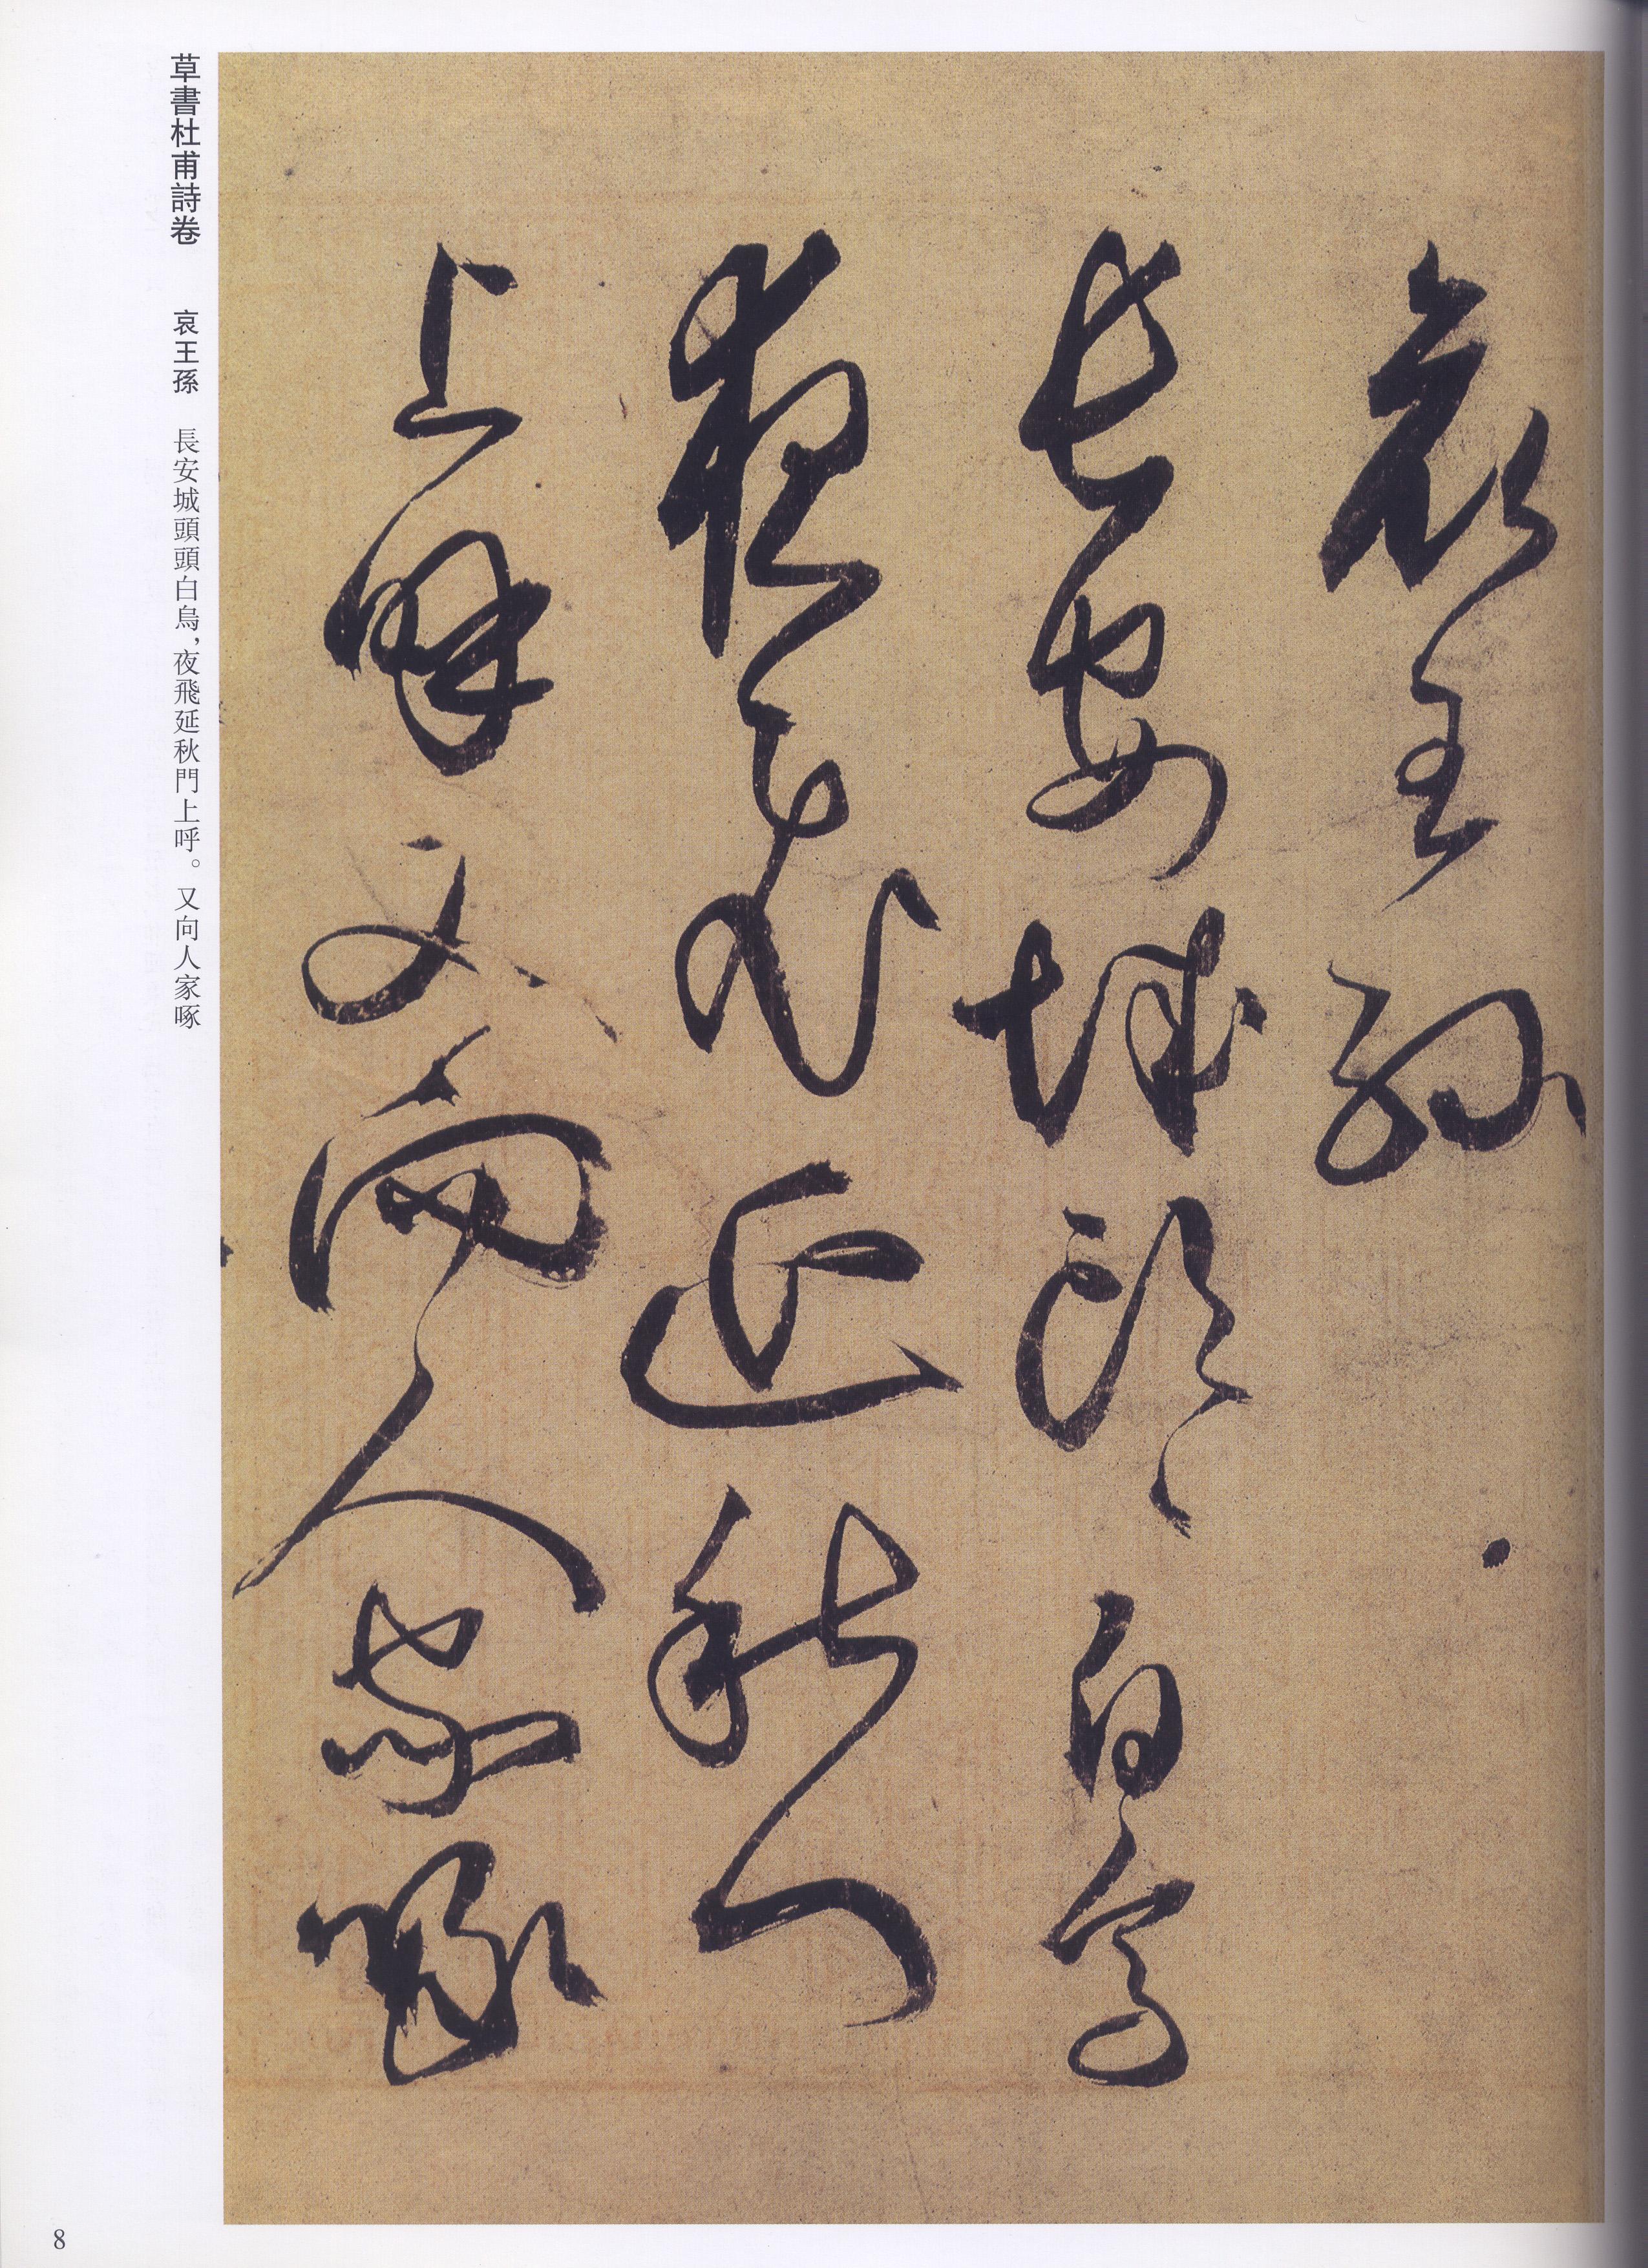 哀王孫
長安城頭頭白烏
夜飛延秋門
上呼又向人家啄
草書杜甫詩卷 哀王孫 長安城頭頭白烏，夜飛延秋門上呼。又向人家啄
8